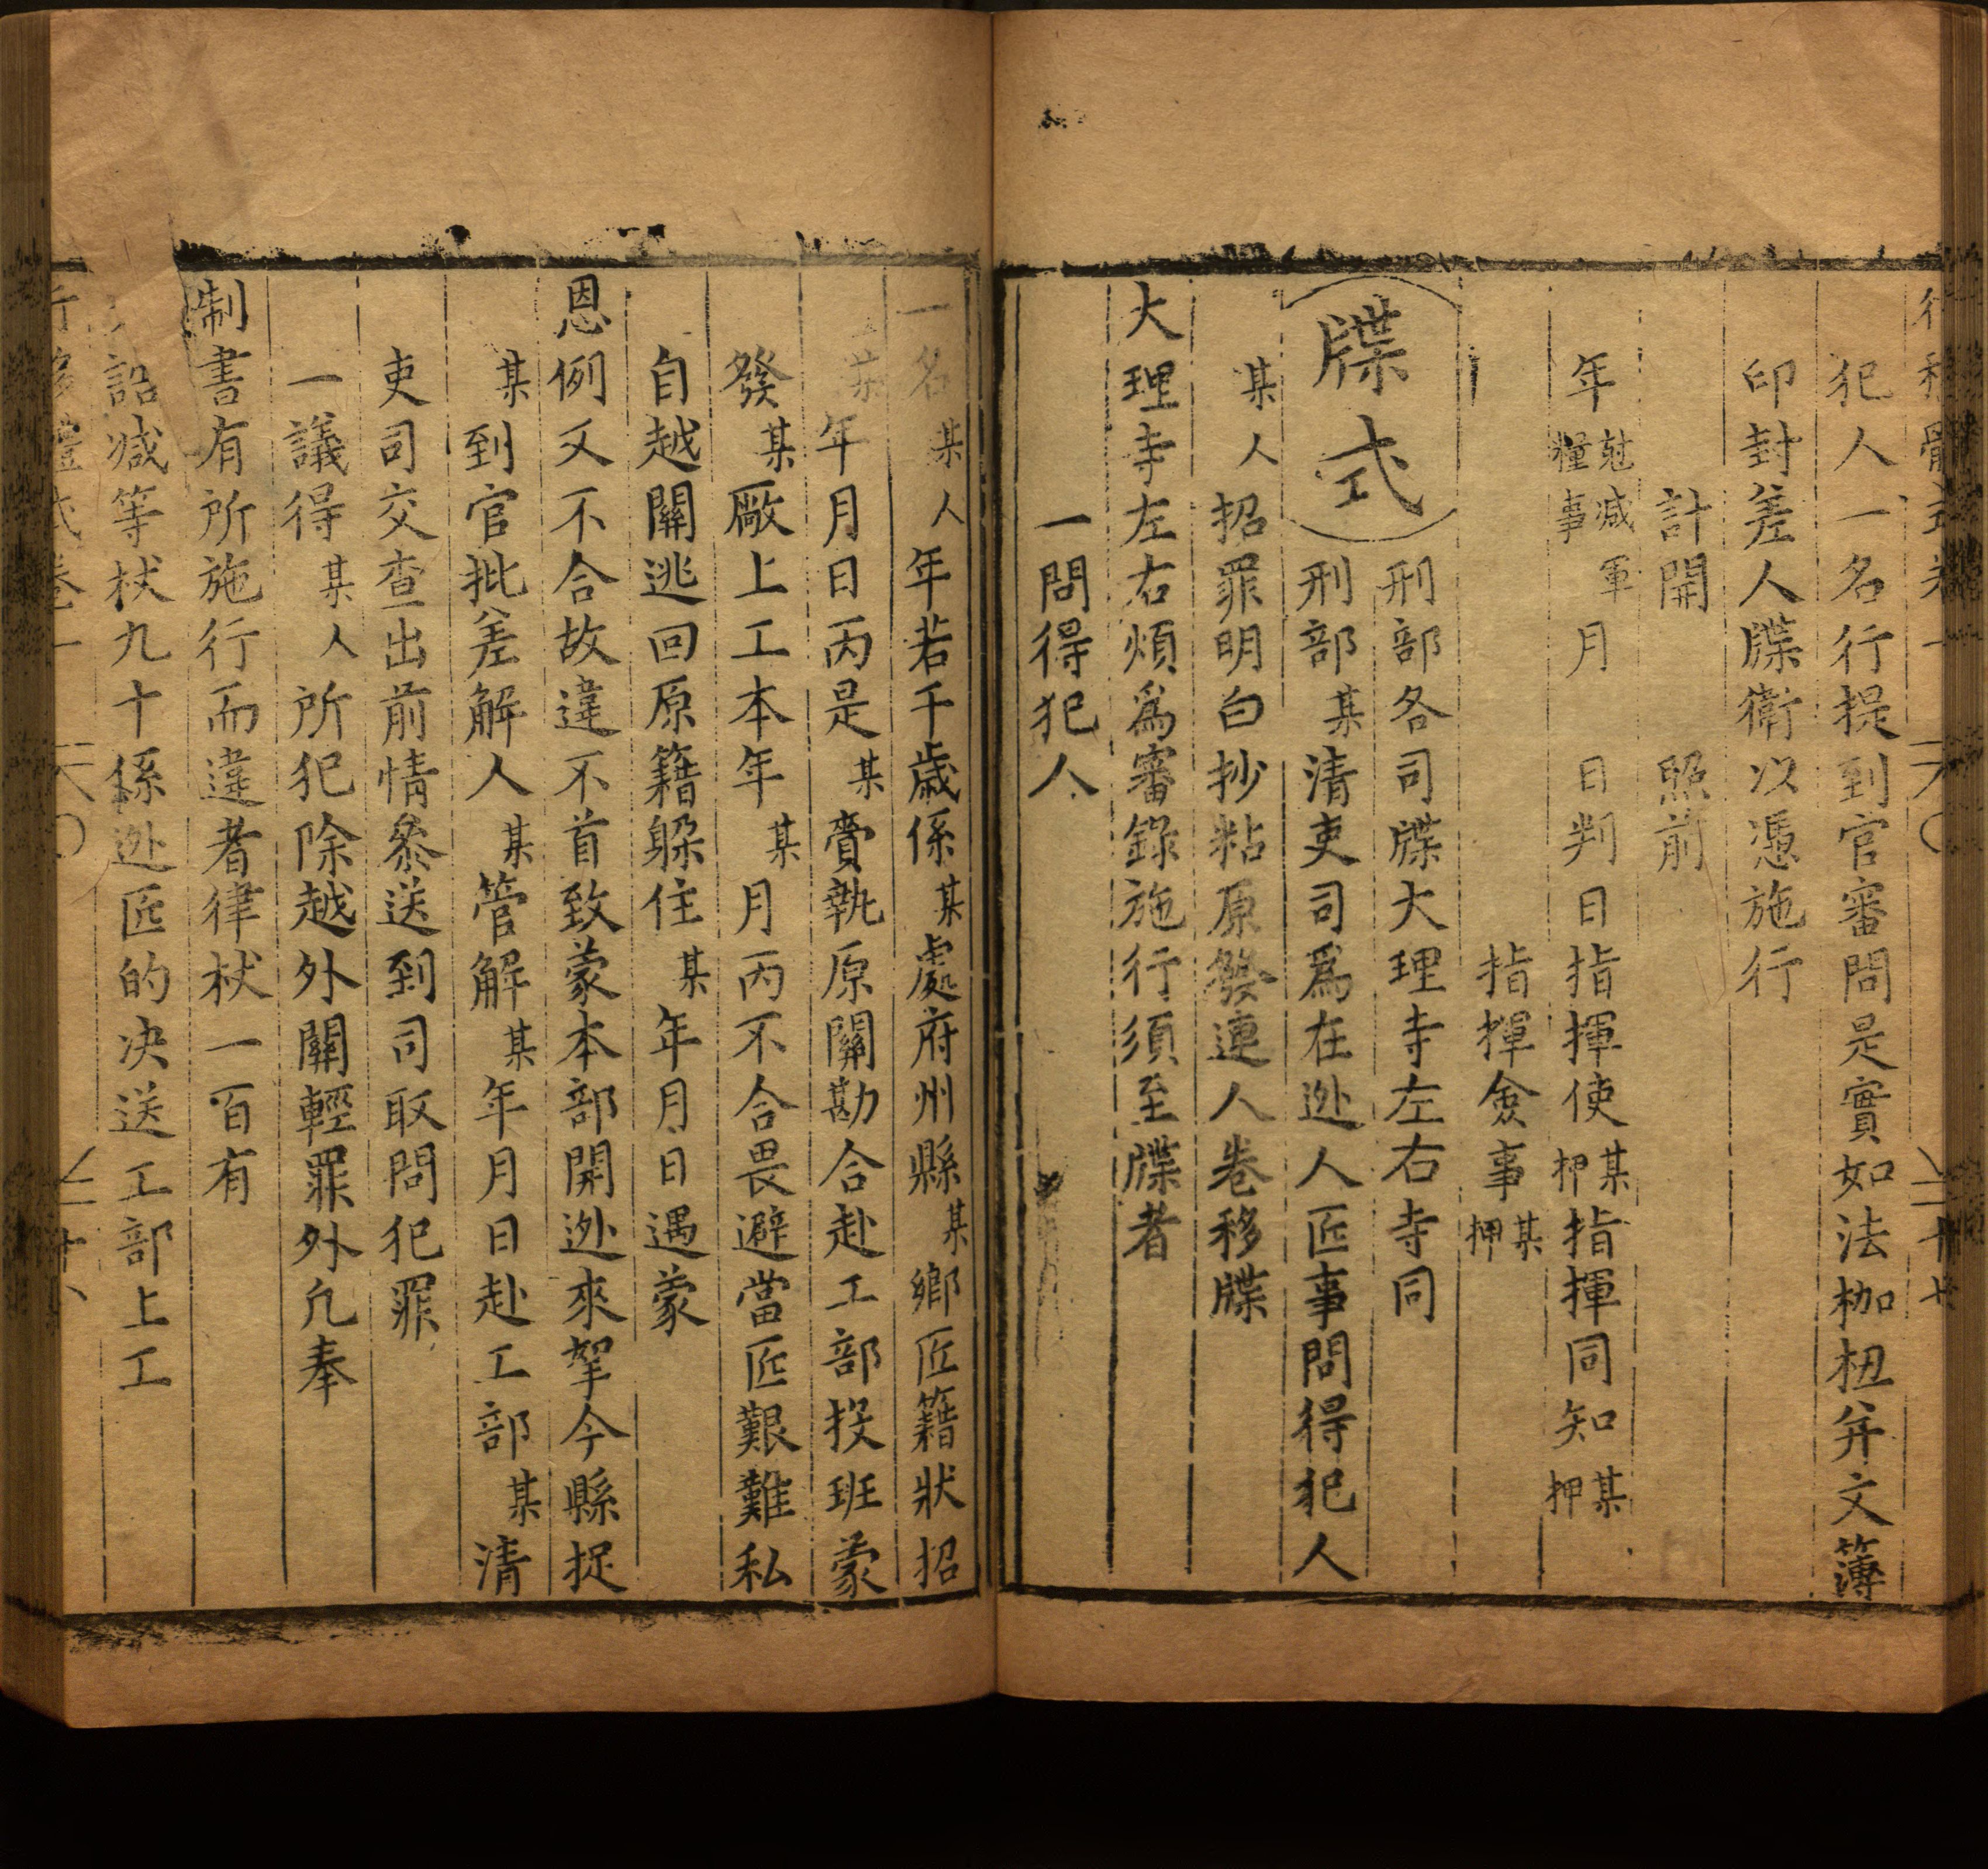 犯人一名行提到官審問是實如法枷杻弁文簿
印封差人牒衛以憑施行
計開　照前
年尅減軍糧事月　日判日指揮使某押指揮同知某押
指揮僉事某押
牒式
刑部各司牒大理寺左右寺同
刑部某清吏司爲在迯人匠事問得犯人
某人招罪明白抄粘原發連人卷移牒
大理寺左右煩爲審錄施行須至牒者
一問得犯人
一名某人年若干歲係某處府州縣某鄉匠籍狀招
年月日丙是某賫執原關勘合赴工部投班蒙
發某廠上工本年某月丙不合畏避當匠艱難私
自越關逃回原籍躲住某年月日遇蒙
恩例又不合故違不首致蒙本部開迯來挐今縣捉
某到官批差解人某管解某年月日赴工部某清
吏司交查出前情叅送到司取問犯罪
一議得某人所犯除越外關輕罪外凢奉
制書有所施行而違者律杖一百有
詔减等杖九十係迯匠的决送工部上工